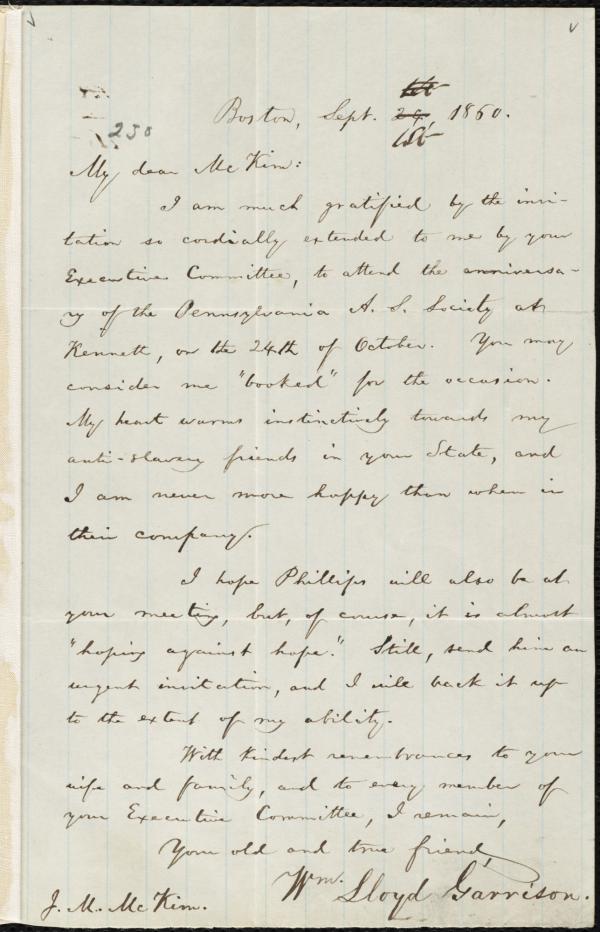 Boston, Sept. 29, 1860.
250
My dear Mc Kim:
I am much gratified by the invi-
tation so cordially extended to me by your
Executive Committee, to attend the anniversa-
ry of the Pennsylvania A. S. Society at
Kennett, on the 24th of October. You may
consider me "booked" for the occasion.
My heart warms instinctively towards my
anti-slavery friends in your State, and
I am never more happy than when in
their company.
I hope Phillips will also be at
your meeting, but, of course, it is almost
"hoping against hope." Still, send him an
urgent invitation, and I will back it up
to the extent of my ability.
With kindest remembrances to your
wife and family, and to every member of
your Executive Committee, I remain,
Your old and true friend,
Wm. Lloyd Garrison.
J. M. McKim.